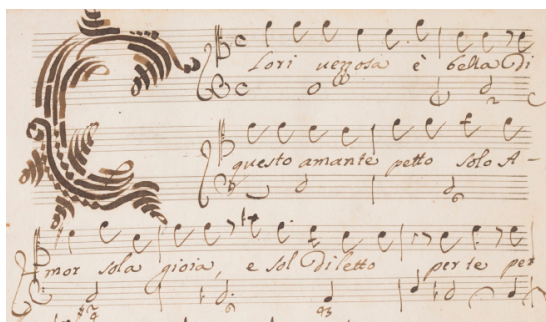 Clori uezzosa è bella Di
questo amante petto solo A-
mor sola gioia, e sol Diletto per te per